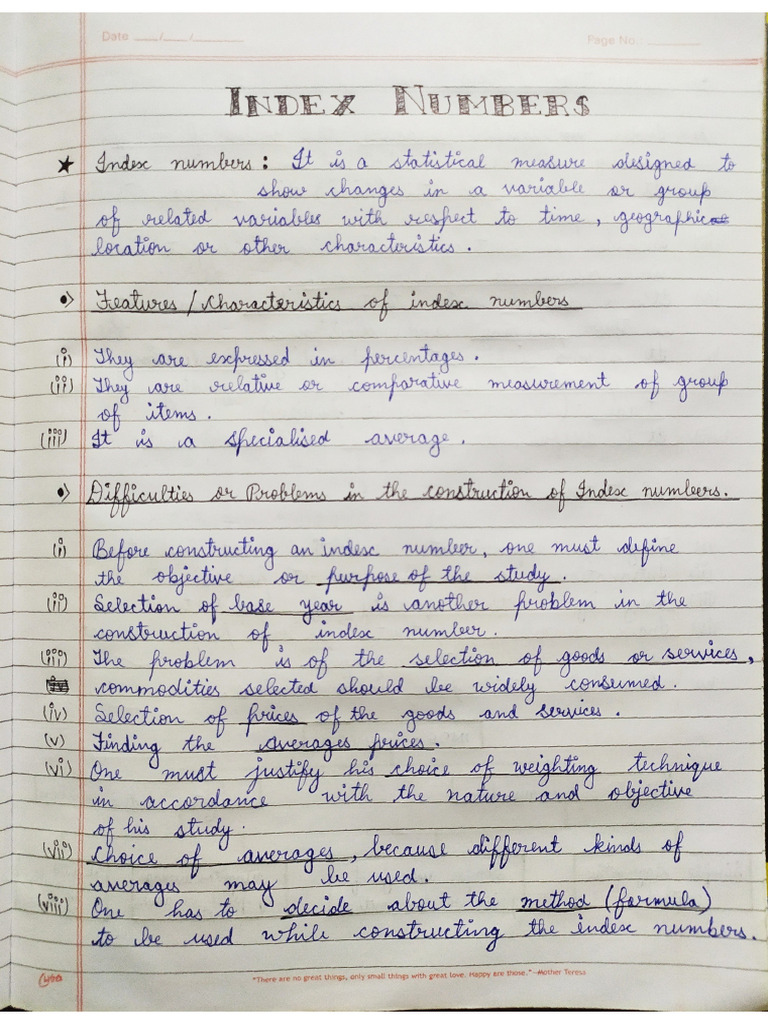 Date ___/___/______ Page No.: ______
INDEX NUMBERS
★ Index numbers : It is a statistical measure designed to
show changes in a variable or group
of related variables with respect to time, geographic
location or other characteristics.
•> Features / Characteristics of index numbers
(i) They are expressed in percentages.
(ii) They are relative or comparative measurement of group
of items.
(iii) It is a specialised average.
•> Difficulties or Problems in the construction of Index numbers.
(i) Before constructing an index number, one must define
the objective or purpose of the study.
(ii) Selection of base year is another problem in the
construction of index number.
(iii) The problem is of the selection of goods or services,
commodities selected should be widely consumed.
(iv) Selection of prices of the goods and services.
(v) Finding the averages prices.
(vi) One must justify his choice of weighting technique
in accordance with the nature and objective
of his study.
(vii) Choice of averages, because different kinds of
averages may be used.
(viii) One has to decide about the method (formula)
to be used while constructing the index numbers.
"There are no great things, only small things with great love. Happy are those."—Mother Teresa